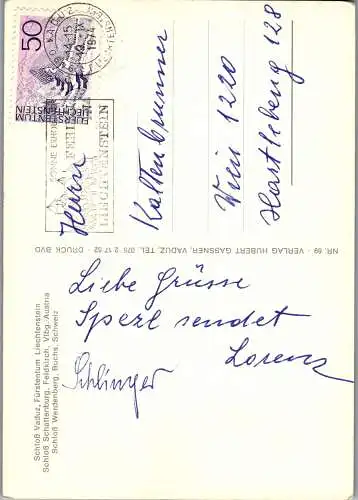 Schloß Vaduz, Fürstentum Liechtenstein
Schloß Schattenburg, Feldkirch, Vlbg.-Austria
Schloß Werdenberg, Buchs, Schweiz
Liebe Grüsse
Spezl sendet
Lorenz
Schlinger
NR. 69 - VERLAG HUBERT GASSNER, VADUZ, TEL. 075 2 17 52 - DRUCK BVD
50
FÜRSTENTUM
LIECHTENSTEIN
VADUZ
1974
FERIEN
LIECHTENSTEIN
Herrn
Kaltenbrunner
Wien 1220
128